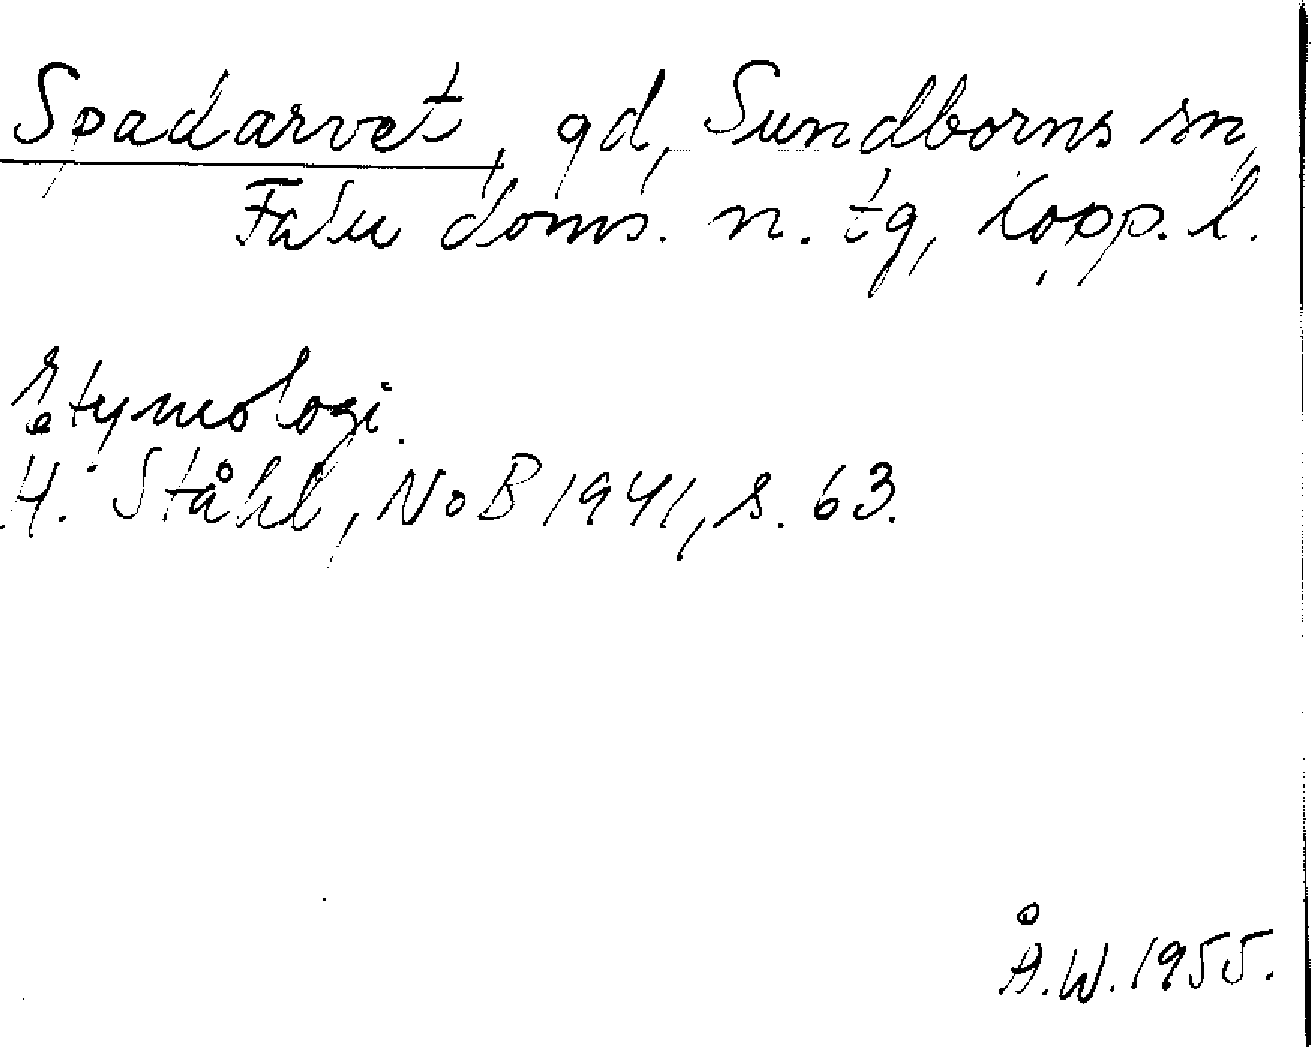 Spadarvet, gd, Sundborns sn,
Falu doms. n. tg, Kopp. l.
Etymologi.
H. Ståhl, NoB 1941, s. 63.
Å.W. 1955.